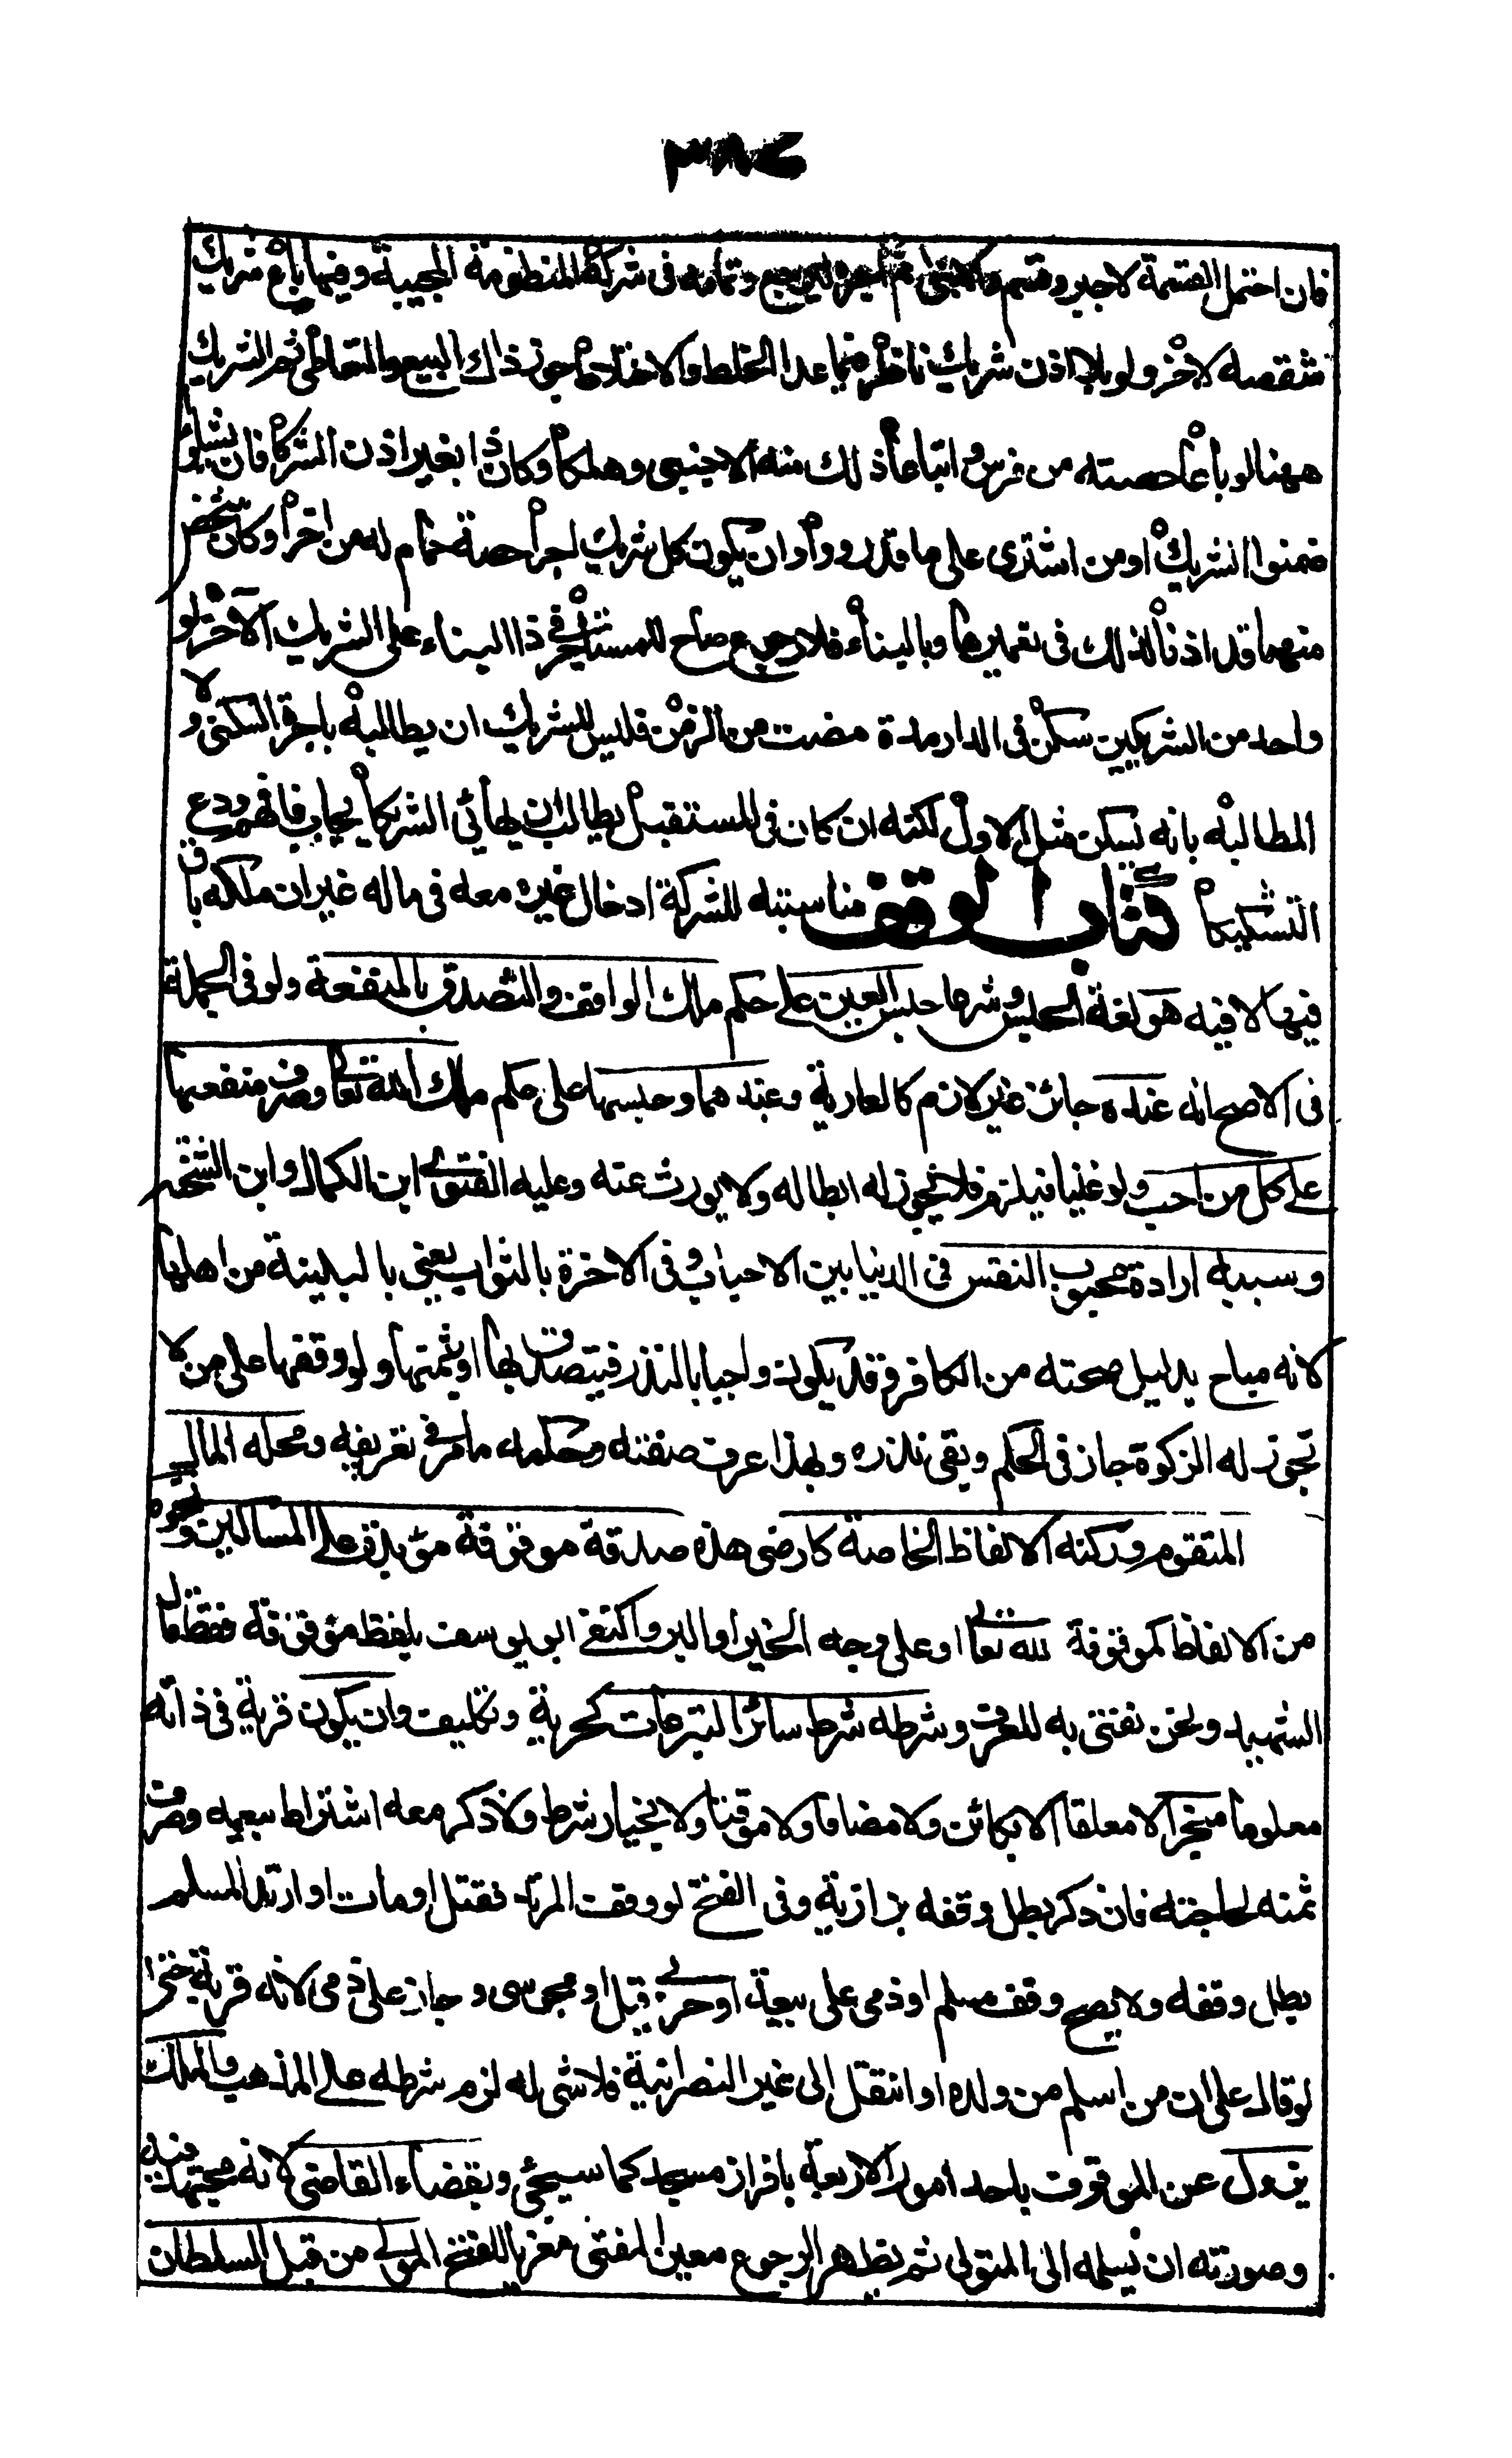 ٣٨٤
فان احتمل القسمة لاجبر وقسم والا بنى ثم آجره ليرجع وتمامه فى شركة المنظومة المحبية وفيها باع شريك
شقصه لاخر ولو بلا اذن شريك ناظر فيما عدا الخلط والاختلاط جوز ذاك البيع والتعاطى ثم الشريك
ههنا لو باعا حصته من فرس وابتاعا ذلك منه الاجنبى وهلكا وكان ذا بغير اذن الشركا فان يشاؤ
ضمنوا الشريك او من اشترى على ما قد رووا وان يكون كل شريك اجرا حصة حمام له من اخرا وكان شخص
منهما قد اذنا لذلك فى تعميرها وبالبناء فلا رجوع صاح للمستأجر فى ذا البناء على الشريك الآخر لو
واحد من الشريكين سكن فى الدار مدة مضت من الزمن فليس للشريك ان يطالبه باجرة السكنى ولا
المطالبه بانه يسكن مثل الاول لكنه ان كان فى المستقبل يطالب ان يهائى الشريكا يجاب فافهم ودع
التشكيكا كتاب الوقف مناسبته للشركة ادخال غيره معه فى ماله غير ان ملكه باق
فيها لا فيه هو لغة الحبس وشرعا حبس العين على حكم ملك الواقف والتصدق بالمنفعة ولو فى الجملة
فى الاصح انه عنده جائز غير لازم كالعارية وعندهما وحبسها على حكم ملك الله تعا وصرف منفعتها
على كل من احب ولو غنيا فيلزم فلا يجوز له ابطاله ولا يورث عنه وعليه الفتوى ابن الكمال وابن الشحنه
وسببه ارادة محبوب النفس فى الدنيا بين الاحباب وفى الاخرة بالثواب يعنى بالنية من اهلها
لانه مباح بدليل صحته من الكافر وقد يكون واجبا بالنذر فيتصدق بها او بثمنها ولو وقفها على من لا
تجوز له الزكوة جاز فى الحكم وبقى نذره وبهذا عرف صفته وحكمه مامر فى تعريفه ومحله المال
المتقوم وركنه الالفاظ الخاصة كارضى هذه صدقة موقوفة مؤبدة على المساكين ونحوه
من الالفاظ كموقوفة لله تعالى او على وجه الخير او البر واكتفى ابو يوسف بلفظ موقوفة فقط قال
الشهيد ونحن نفتى به للعرف وشرطه شرط سائر التبرعات كحرية وتكليف وان يكون قربة فى ذاته
معلوما منجزا لا معلقا الا بكائن ولا مضافا ولا موقتا ولا بخيار شرط ولا ذكر معه اشتراط بيعه وصرف
ثمنه لحاجته فان ذكر بطل وقفه بزازية وفى الفتح لو وقف المرتد فقتل او مات او ارتد المسلم
بطل وقفه ولا يصح وقف مسلم او ذمى على بيعة او حربى قيل او مجوسى وجاز على ذمى لانه قربة حتى
لو قال على ان من اسلم من ولده او انتقل الى غير النصرانية فلا شى له لزم شرطه على المذهب والملك
يزول عن الموقوف باحد امور الاربعة بافراز مسجد كما سيجئ وبقضاء القاضى لانه مجتهد فيه
وصورته ان يسلمه الى المتولى ثم يظهر الرجوع معين المفتى معزيا للفتح المولى من قبل السلطان